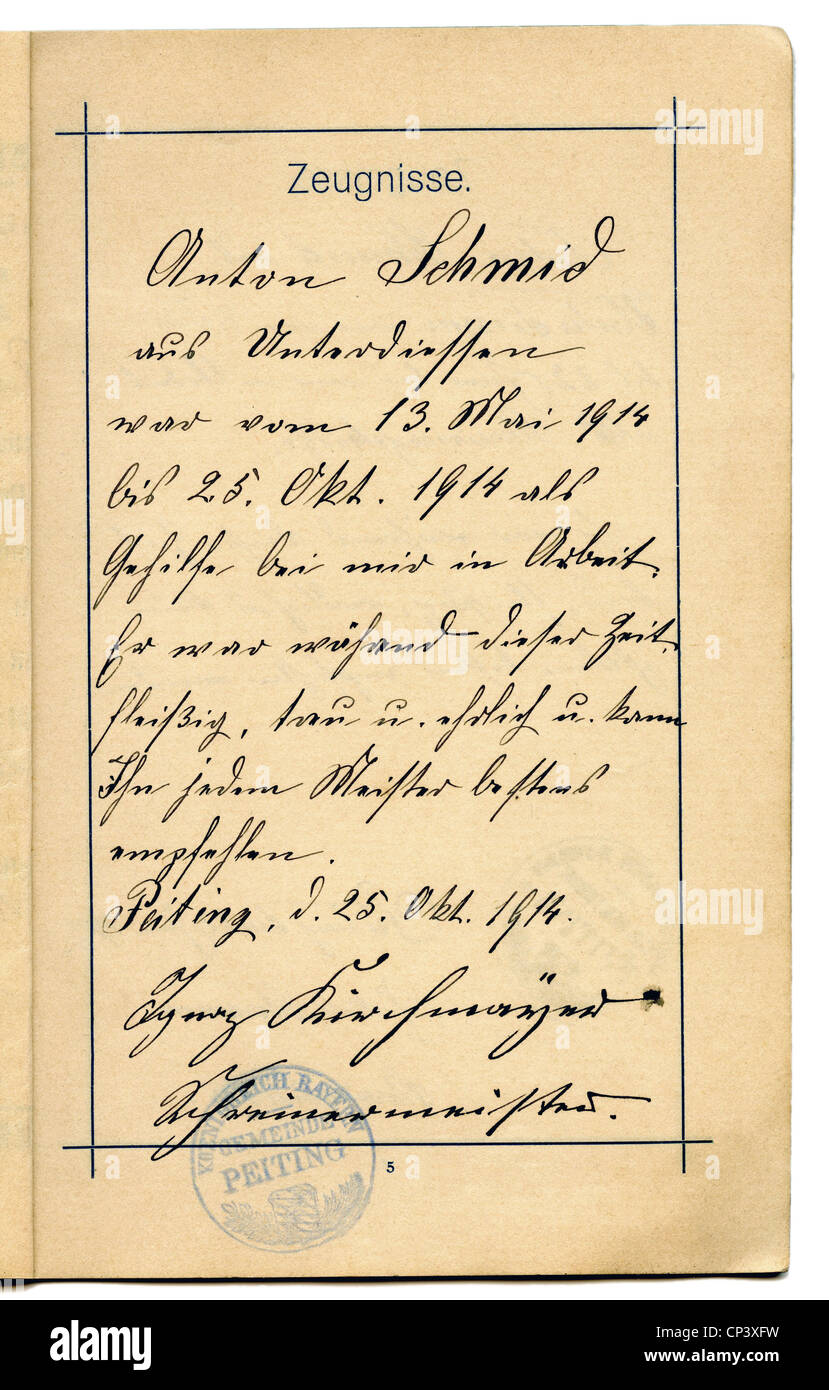 Zeugnisse.
Anton Schmid
aus Unterdiessen
war vom 13. Mai 1914
bis 25. Okt. 1914 als
Gehilfe bei mir in Arbeit.
Er war währand dieser Zeit
fleißig, treu u. ehrlich u. kann
Ihn jedem Meister bestens
empfehlen.
Peiting, d. 25. Okt. 1914.
Ignaz Kirchmayer
Schreinermeister.
KOENIGLICH BAYERN
GEMEINDE
PEITING
5
alamy
a
alamy
Image ID: CP3XFW
www.alamy.com